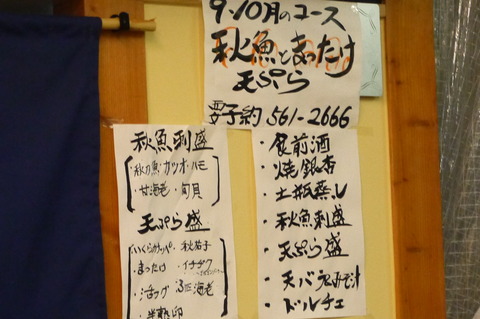 9・10月のコース
秋魚とまったけ
天ぷら
要予約 561-2666
秋魚刺盛
・秋刀魚・カツオ・ハモ
・甘海老・旬貝
天ぷら盛
・秋茄子
・まったけ・イチヂク
・活フグ・海老
・半熟卵
・食前酒
・焼銀杏
・土瓶蒸し
・秋魚刺盛
・天ぷら盛
・天バラ
・ドルチェ